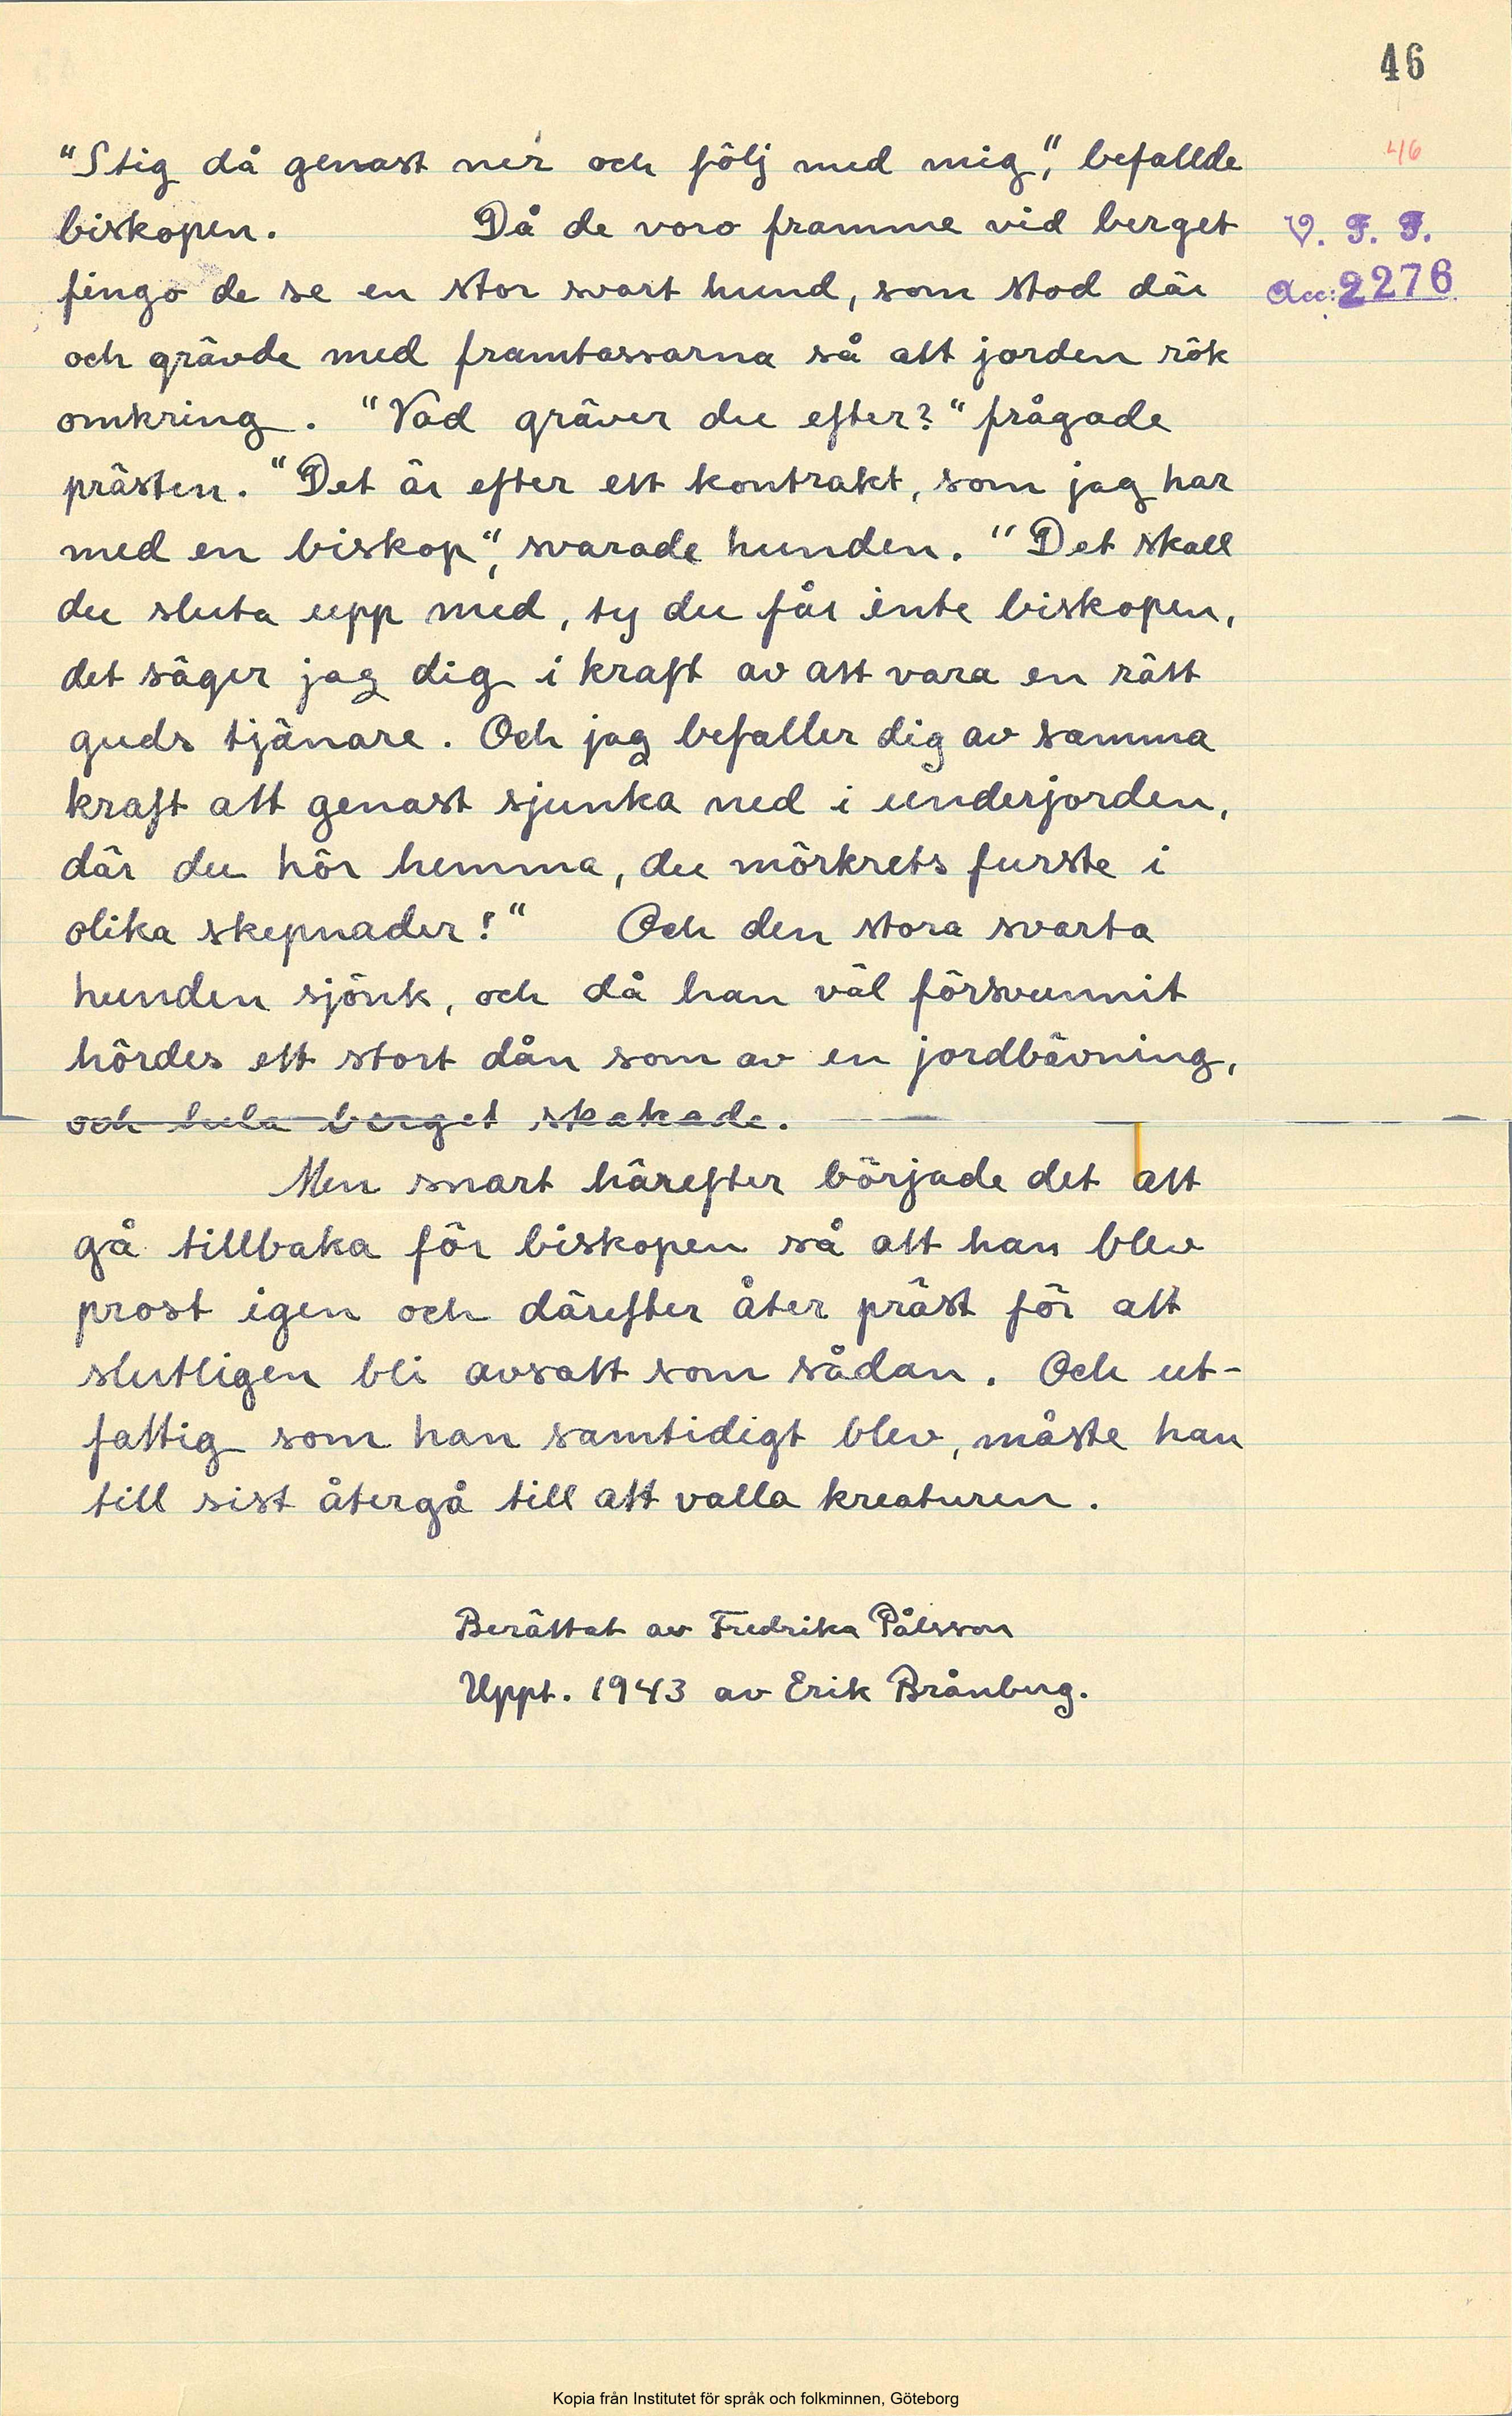 46
"Stig då genast ner och följ med mig", befallde
46
biskopen. Då de voro framme vid berget
V. F. F.
fingo de se en stor svart hund, som stod där
Acc: 2276
och grävde med framtassarna så att jorden rök
omkring. "Vad gräver du efter?" frågade
prästen. "Det är efter ett kontrakt, som jag har
med en biskop", svarade hunden. "Det skall
du sluta upp med, ty du får inte biskopen,
det säger jag dig i kraft av att vara en rätt
guds tjänare. Och jag befaller dig av samma
kraft att genast sjunka ned i underjorden,
där du hör hemma, du mörkrets furste i
olika skepnader!" Och den stora svarta
hunden sjönk, och då han väl försvunnit
hördes ett stort dån som av en jordbävning,
och hela berget skakade.
Men snart härefter började det att
gå tillbaka för biskopen så att han blev
prost igen och därefter åter präst för att
slutligen bli avsatt som sådan. Och ut-
fattig som han samtidigt blev, måste han
till sist återgå till att valla kreaturen.
Berättat av Fredrika Pålsson
Uppt. 1943 av Erik Brånberg.
Kopia från Institutet för språk och folkminnen, Göteborg